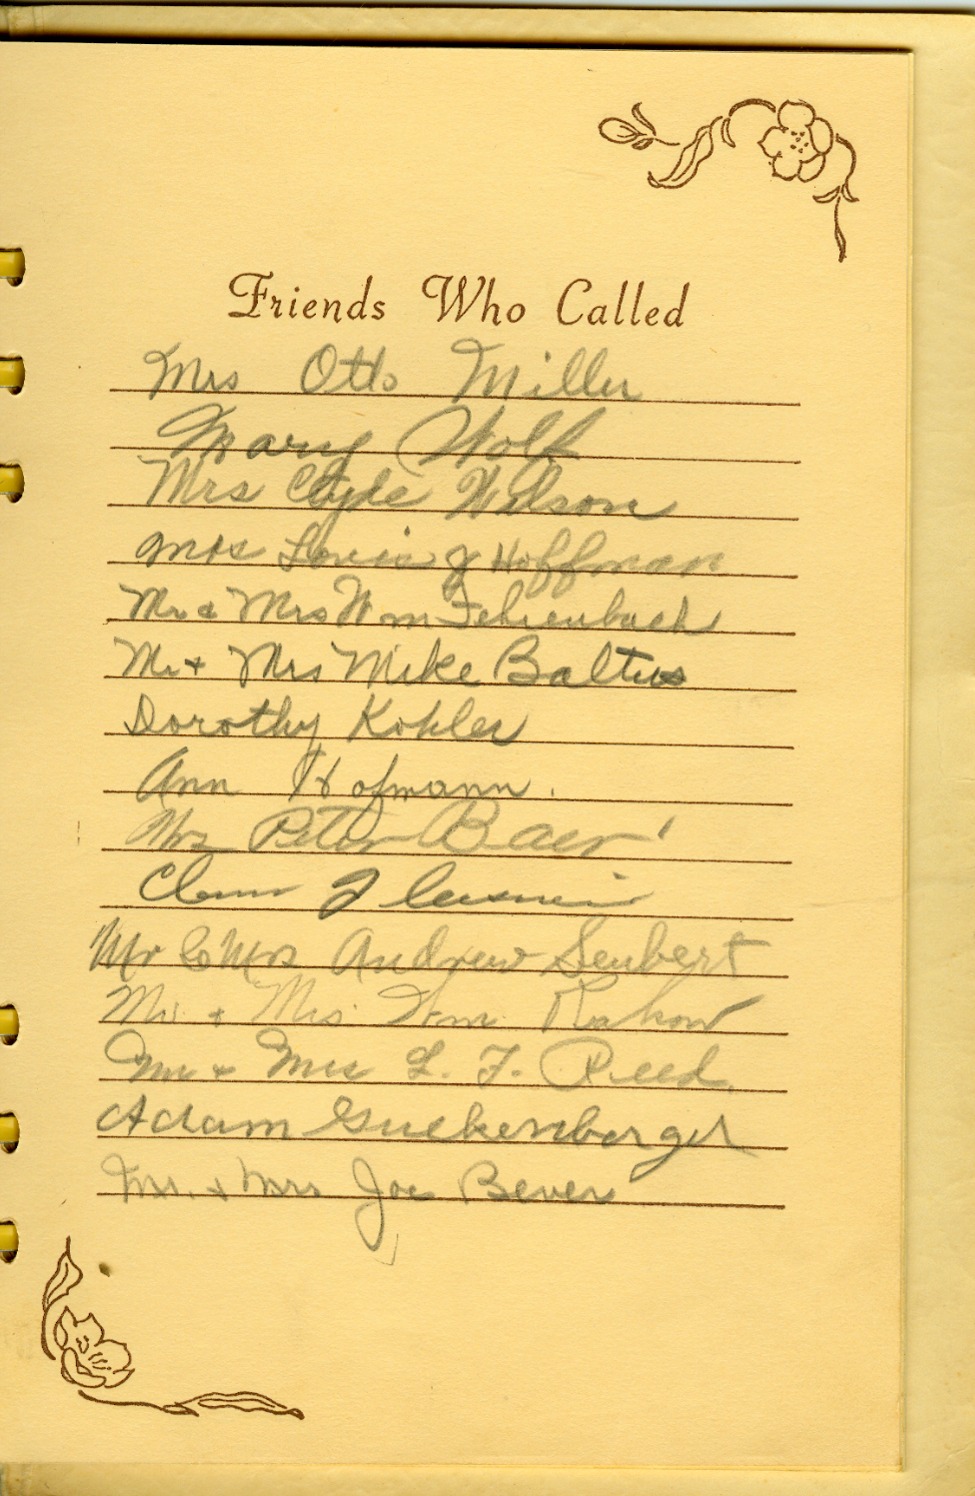 Friends Who Called
Mrs Otto Miller
Mary Wolf
Mrs Clyde Wilson
Mrs Louis J Hoffman
Mr & Mrs Wm Fehrenbach
Mr + Mrs Mike Baltus
Dorothy Kohler
Ann Hofmann.
Mrs Peter Baer
Mr & Mrs Andrew Seubert
Mr. + Mrs. Wm. Rakow
Mr + Mrs L. F. Reed.
Adam Guckenberger
Mr. + Mrs Joe Bever